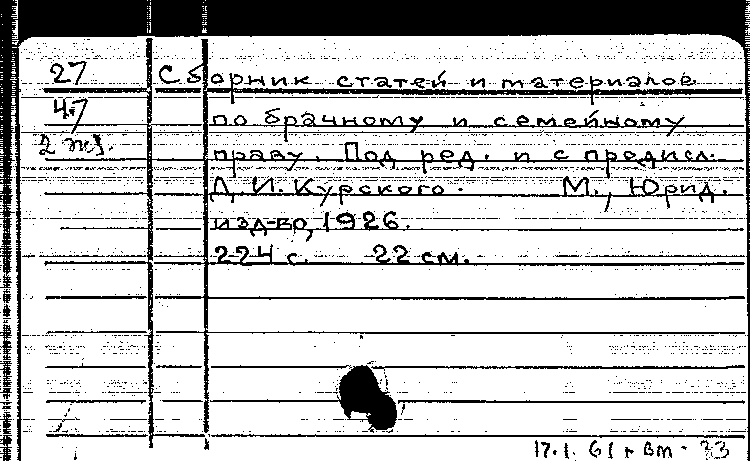 27 Сборник статей и материалов
47 по брачному и семейному
2 экз. праву. Под ред. и с предисл.
Д. И. Курского. М., Юрид.
изд-во, 1926.
224 с. 22 см.
17.1.61 г Вт - 33